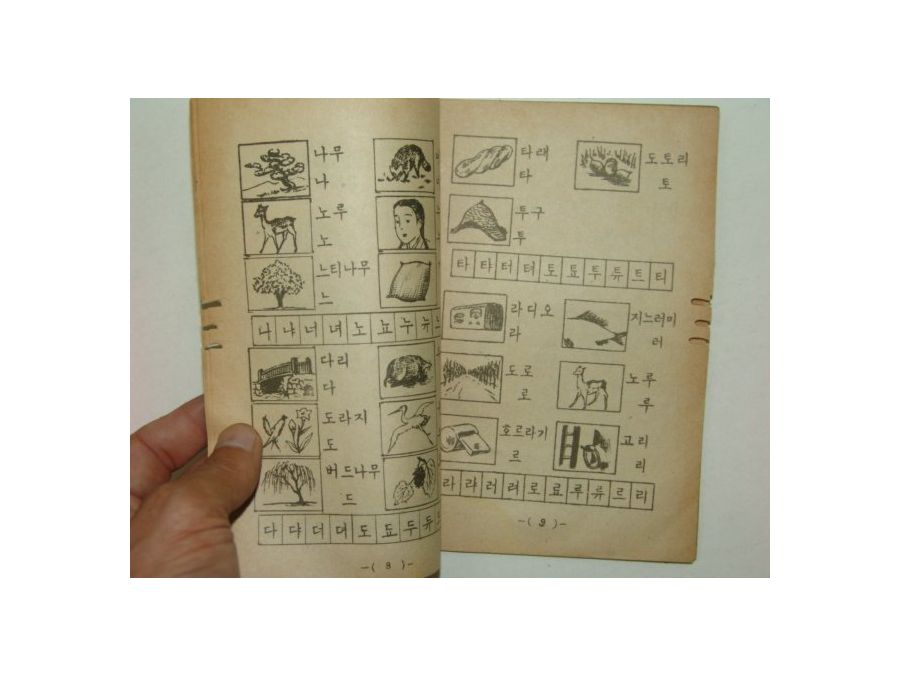 나무
나
노루
노
느티나무
느
나 냐 너 녀 노 뇨 누 뉴
다리
다
도라지
도
버드나무
드
다 댜 더 뎌 도 됴 두 듀
-( 8 )-
타래
타
도토리
토
투구
투
타 탸 터 텨 토 툐 투 튜 트 티
라디오
라
지느러미
러
도로
로
노루
루
호르라기
르
고리
리
라 랴 러 려 로 료 루 류 르 리
-( 9 )-